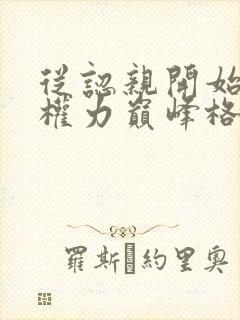 從認親開始
權力巔峰格
羅斯約里奧